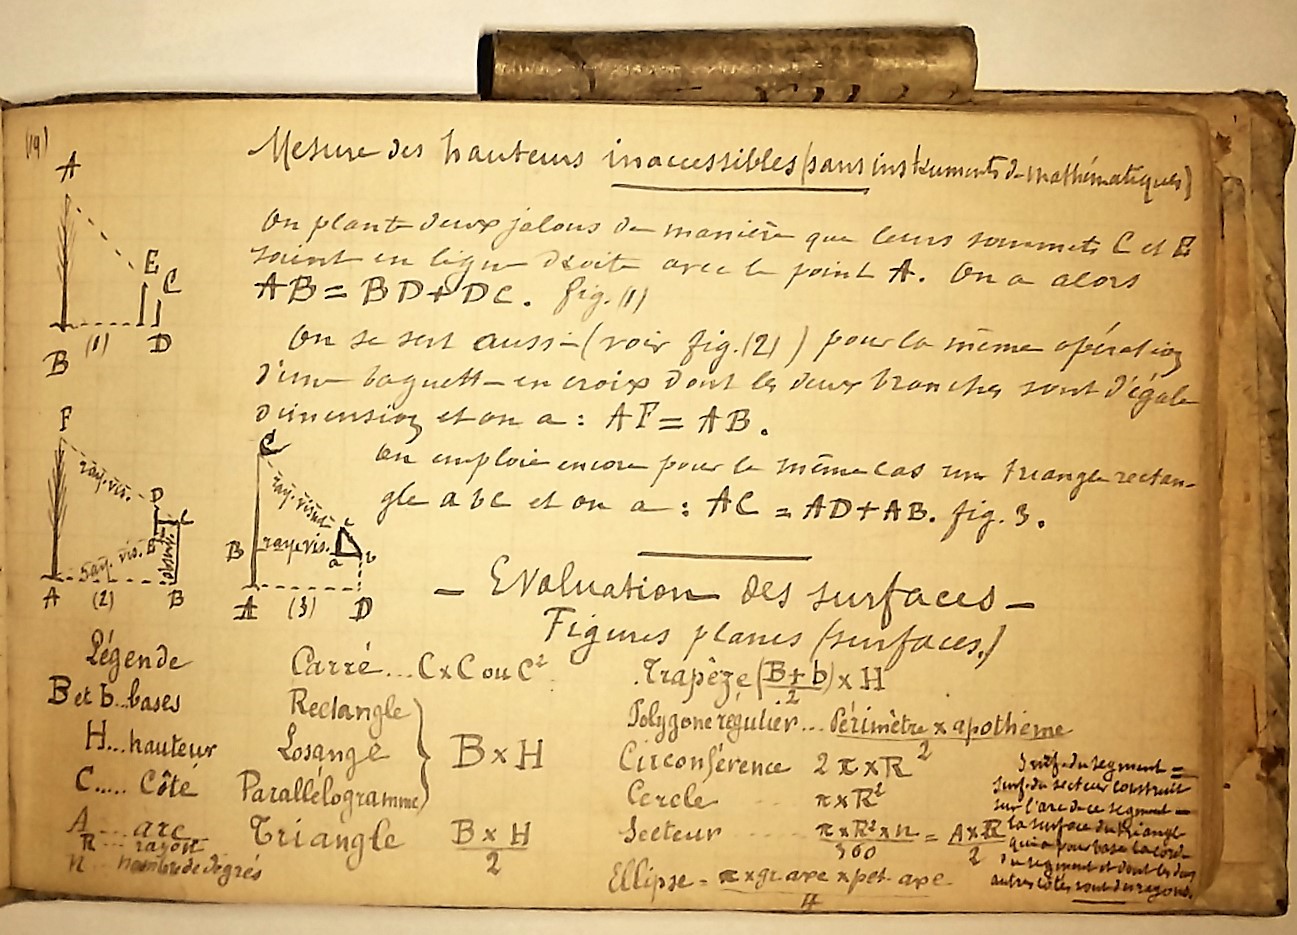 (19)
Mesure des hauteurs inaccessibles (sans instruments de mathématiques)
On plante deux jalons de manière que leurs sommets C et E
soient en ligne droite avec le point A. On a alors
AB = BD + DC. fig. (1)
On se sert aussi (voir fig. (2)) pour la même opération
d'une baguette en croix dont les deux branches sont d'égale
dimension et on a : AF = AB.
On emploie encore pour le même cas un triangle rectan-
gle abc et on a : AC = AD + AB. fig. 3.
A
E
C
B
(1)
D
F
ray. vis.
D
C
E
ray. vis.
observ.
A
(2)
B
C
ray. visuel
c
B
ray. vis.
a
b
A
(3)
D
– Evaluation des surfaces –
Figures planes (surfaces.)
Légende
B et b...bases
H...hauteur
C..... Côté
A ... arc
R ... rayon
n ... nombre de degrés
Carré... C x C ou C²
Rectangle
Losange
Parallélogramme
B x H
Triangle B x H
2
Trapèze (B + b) x H
2
Polygone régulier... Périmètre x apothème
2
Circonférence 2 π x R
Cercle ... π x R²
Secteur ...... π x R² x n = A x R
360 2
Ellipse = π x gr axe x pet axe
4
Surf. du segment =
surf. du secteur construit
sur l'arc de ce segment –
la surface du triangle
qui a pour base la corde
du segment et dont les deux
autres côtés sont du rayons.